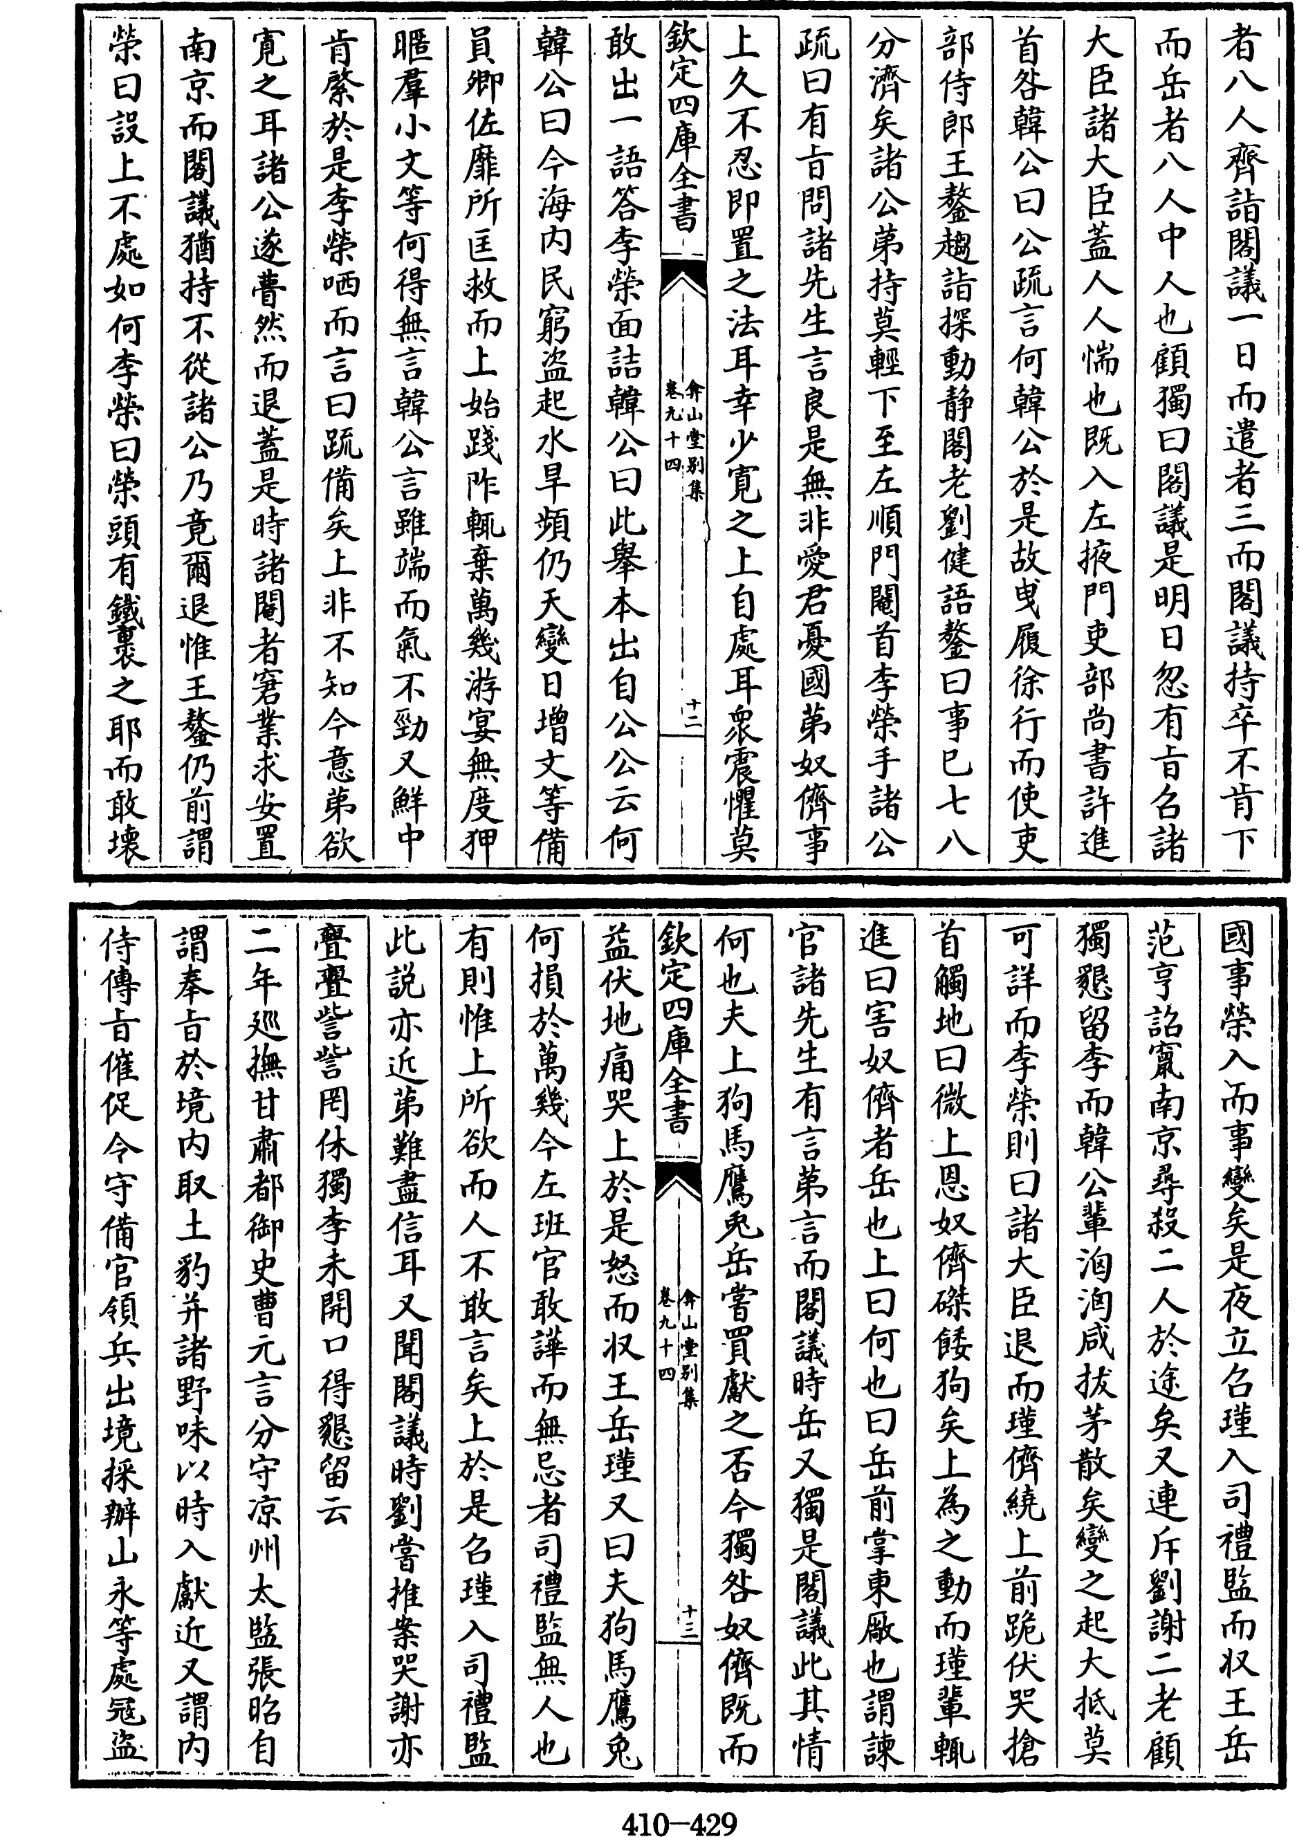 者八人齊詣閣議一日而遣者三而閣議持卒不肯下
而岳者八人中人也顧獨曰閣議是明日忽有㫖召諸
大臣諸大臣蓋人人惴也既入左掖門吏部尚書許進
首咎韓公曰公疏言何韓公於是故曳履徐行而使吏
部侍郎王鏊趨詣探動静閣老劉健語鏊曰事已七八
分濟矣諸公第持莫輕下至左順門閹首李榮手諸公
疏曰有㫖問諸先生言良是無非愛君憂國第奴儕事
上久不忍即置之法耳幸少寛之上自處耳衆震懼莫
欽定四庫全書
弇山堂别集
卷九十四
十二
敢出一語答李榮面詰韓公曰此舉本出自公公云何
韓公曰今海内民窮盗起水旱頻仍天變日增文等備
員卿佐靡所匡救而上始踐阼輒棄萬幾游宴無度狎
暱羣小文等何得無言韓公言雖端而氣不勁又鮮中
肯綮於是李榮哂而言曰疏備矣上非不知今意第欲
寛之耳諸公遂薨然而退蓋是時諸閹者窘業求安置
南京而閣議猶持不從諸公乃竟爾退惟王鏊仍前謂
榮曰設上不處如何李榮曰榮頭有鐵裹之耶而敢壊
國事榮入而事變矣是夜立召瑾入司禮監而収王岳
范亨詔竄南京尋殺二人於途矣又連斥劉謝二老顧
獨懇留李而韓公輩洶洶咸拔茅散矣變之起大抵莫
可詳而李榮則曰諸大臣退而瑾儕繞上前跪伏哭搶
首觸地曰微上恩奴儕磔餧狗矣上為之動而瑾輩輒
進曰害奴儕者岳也上曰何也曰岳前掌東厰也謂諫
官諸先生有言第言而閣議時岳又獨是閣議此其情
何也夫上狗馬鷹兎岳嘗買獻之否今獨咎奴儕既而
欽定四庫全書
弇山堂别集
卷九十四
十三
益伏地痛哭上於是怒而収王岳瑾又曰夫狗馬鷹兎
何損於萬幾今左班官敢譁而無忌者司禮監無人也
有則惟上所欲而人不敢言矣上於是召瑾入司禮監
此說亦近第難盡信耳又聞閣議時劉嘗推案哭謝亦
亹亹訾訾罔休獨李未開口得懇留云
二年廵撫甘肅都御史曹元言分守凉州太監張昭自
謂奉㫖於境内取土豹并諸野味以時入獻近又謂内
侍傳㫖催促令守備官領兵出境採辦山永等處冦盗
410-429